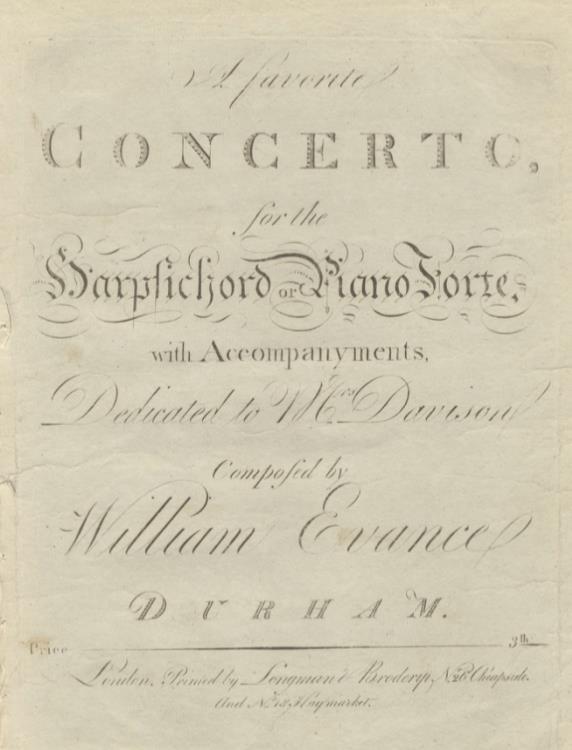 A favorite
CONCERTO,
for the
Harpsichord or Piano Forte,
with Accompanyments,
Dedicated to Mrs Davison
Compoſed by
William Evance
DURHAM.
Price 3sh
London. Printed by Longman & Broderip, No. 26 Cheapside.
And No. 13 Haymarket.